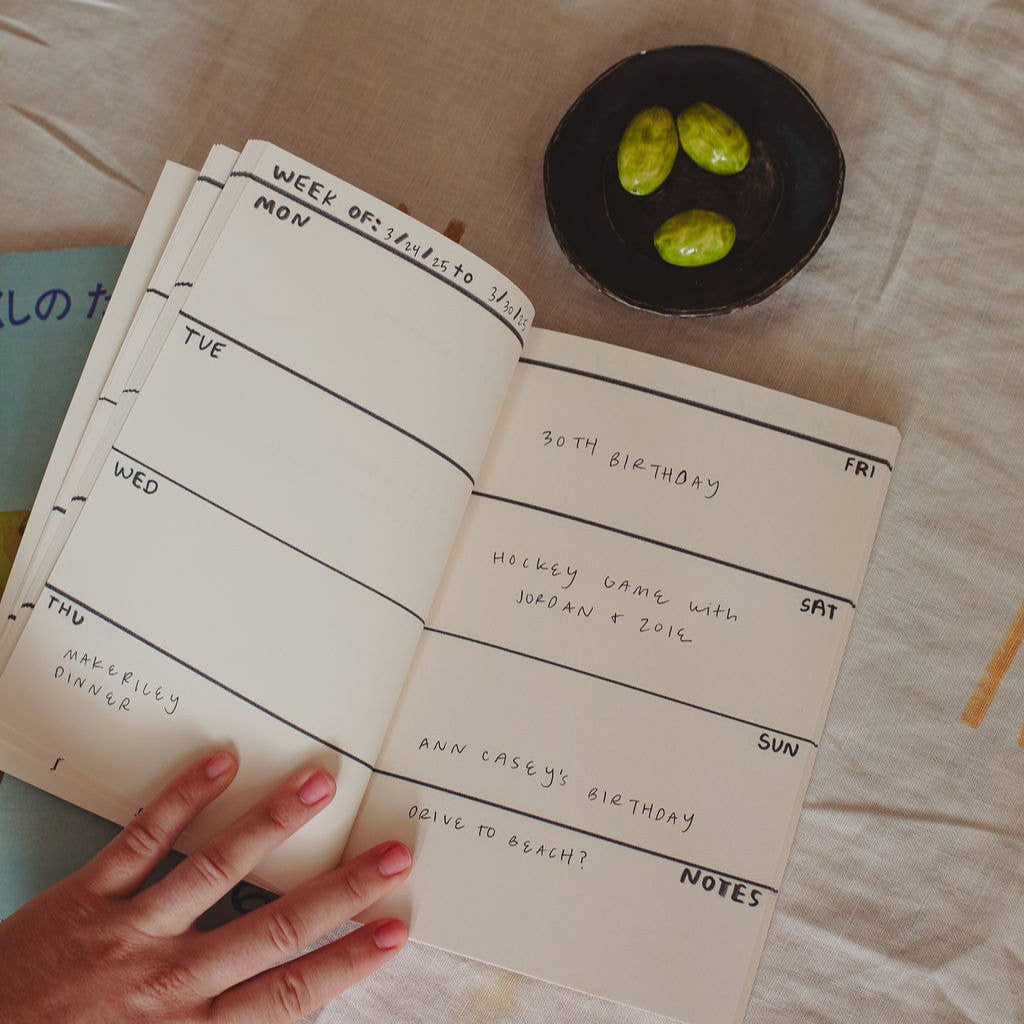 WEEK OF: 3/24/25 to 3/30/25
MON
TUE
WED
THU
MAKERILEY
DINNER
FRI
30TH BIRTHDAY
SAT
HOCKEY GAME with
JORDAN & ZOIE
SUN
ANN CASEY'S BIRTHDAY
NOTES
DRIVE TO BEACH?
しの た